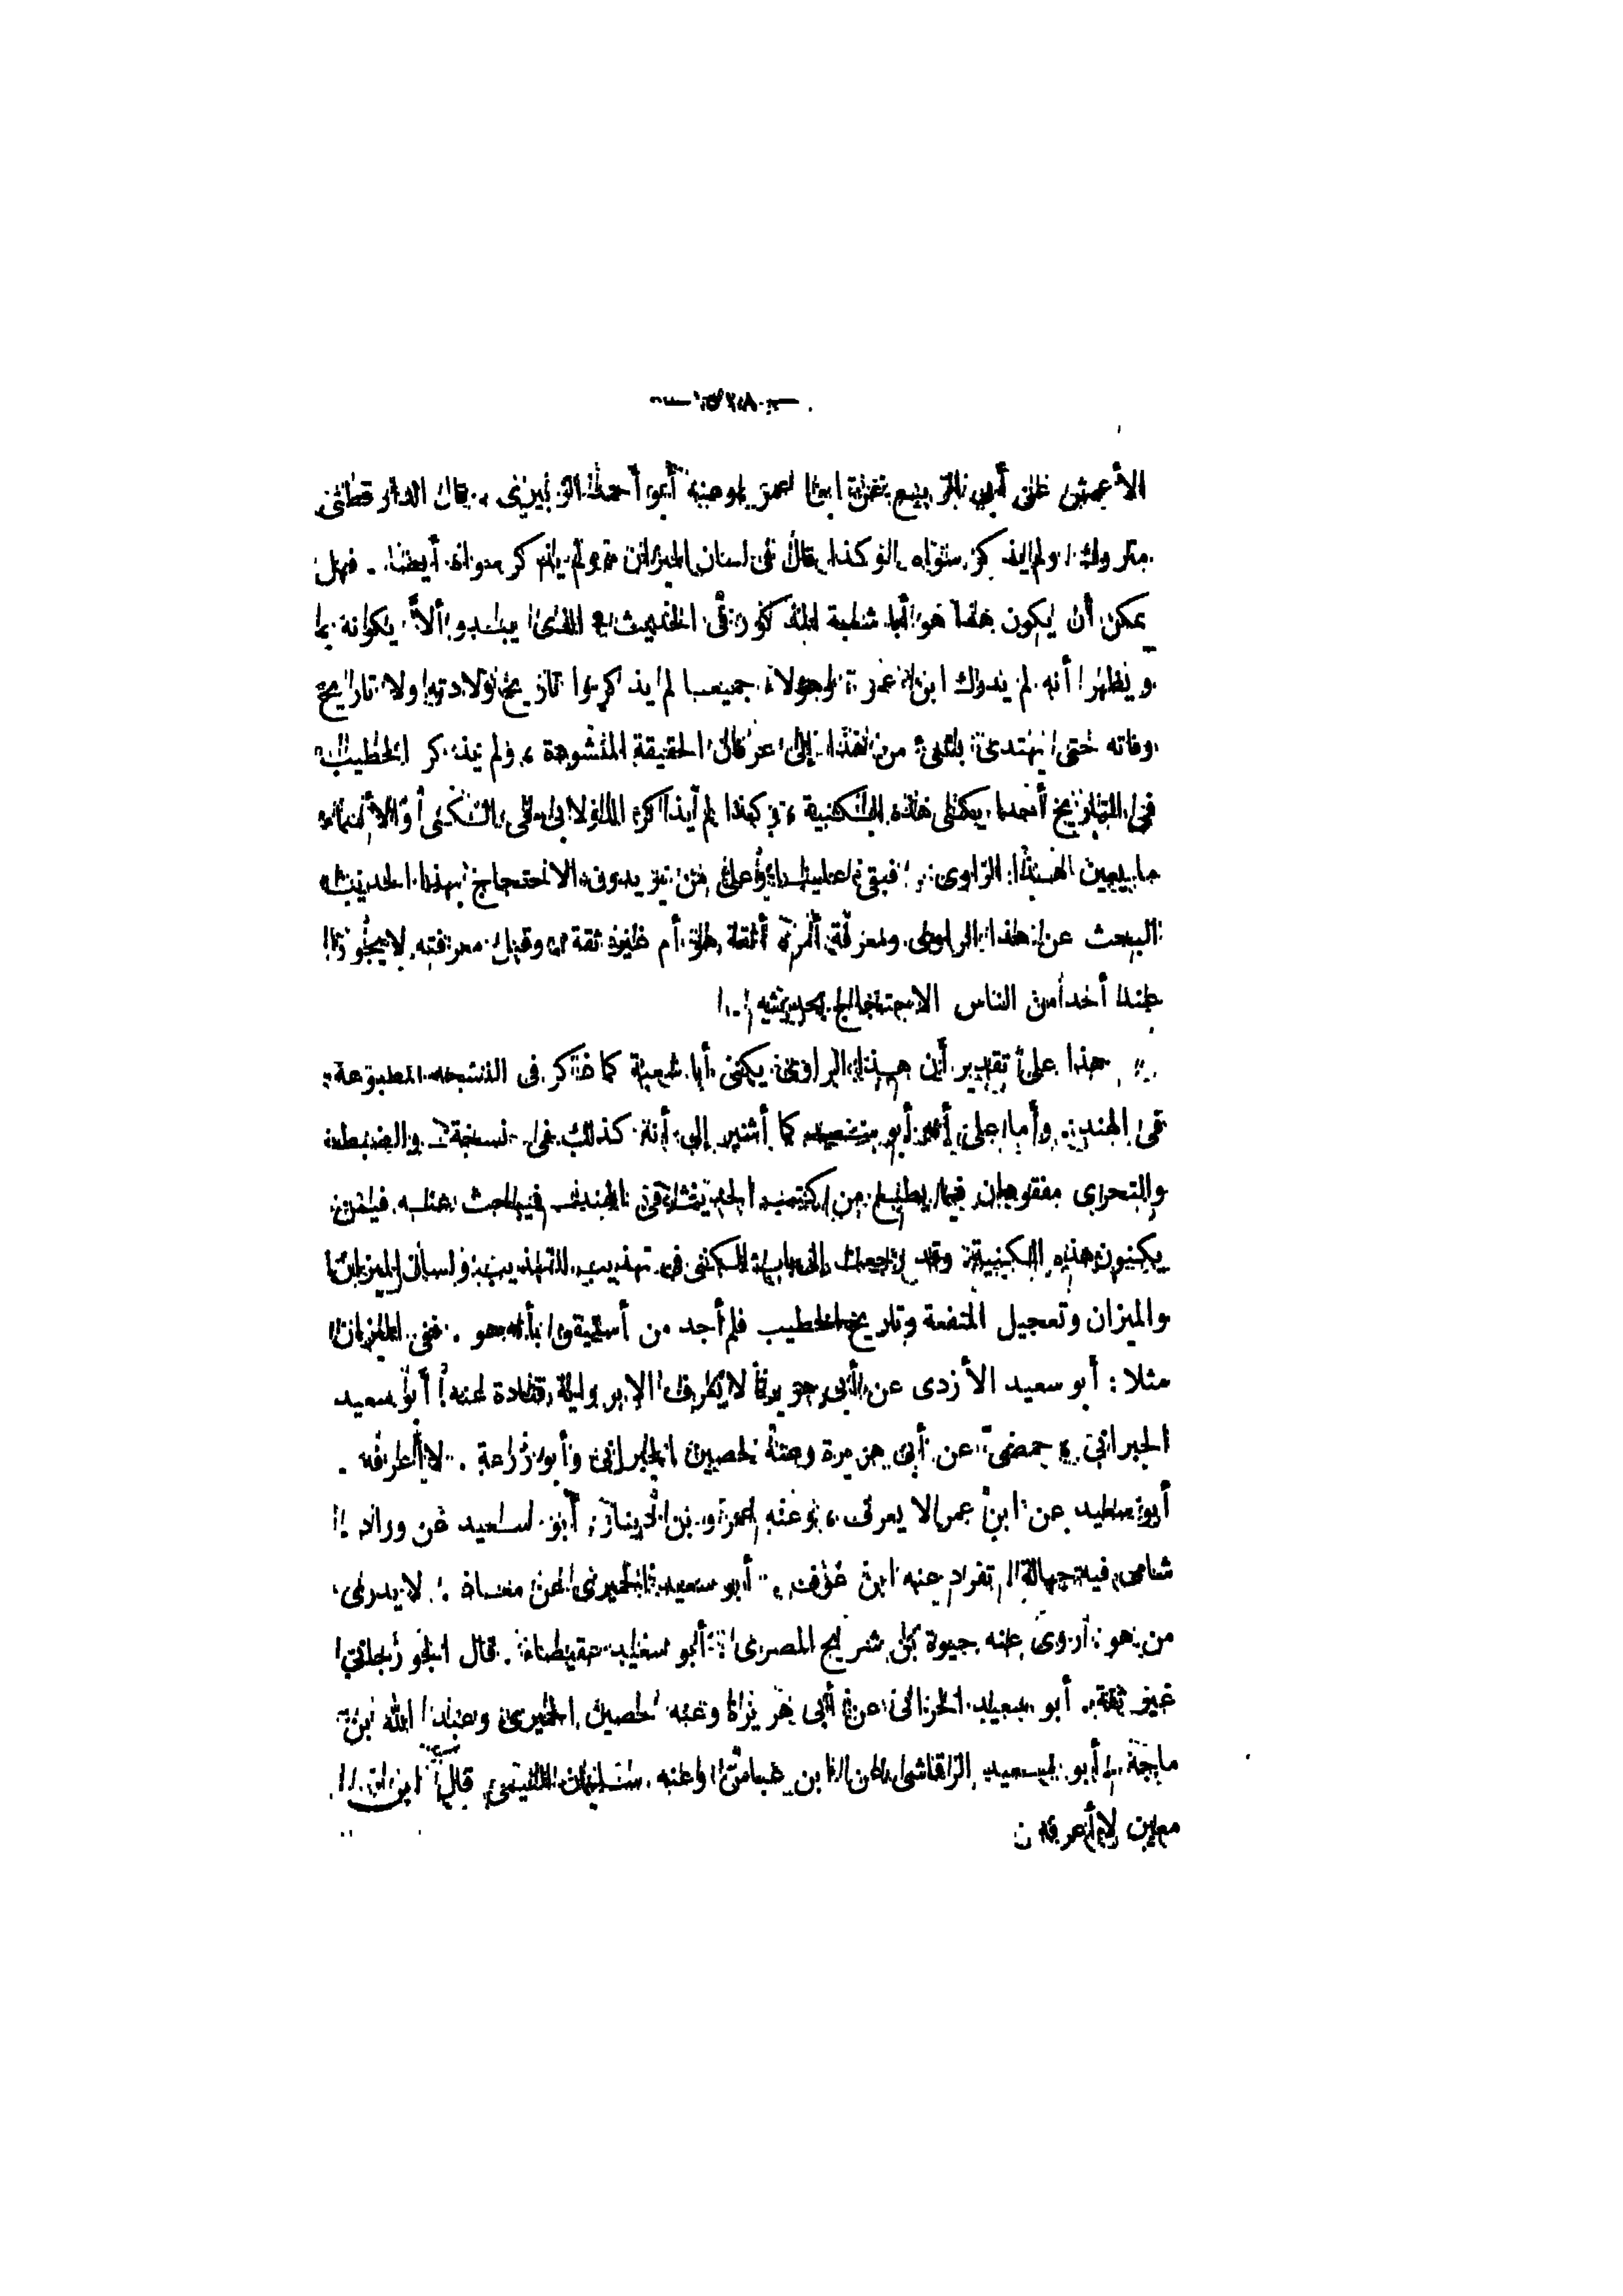 الأعمش عن أبي الربيع عن ابن عمر وعنه أبو أحمد الزبيرى . قال الدارقطنى
متروك ولم يذكر سواه . وكذا قال فى لسان الميزان ولم يذكر سواه أيضا . فهل
يمكن أن يكون هذا هو أبا شعبة المذكور فى الحديث ؟ الذى يبدو ألا يكونه
ويظهر أنه لم يدرك ابن عمر ، وهؤلاء جميعا لم يذكروا تاريخ ولادته ولا تاريخ
وفاته حتى نهتدى بشىء من هذا إلى عرفان الحقيقة المنشودة ، ولم يذكر الخطيب
فى التاريخ أحدا يكنى هذه الكنية ، وكذا لم يذكر الدولابى فى الكنى والأسماء
ما يبين هذا الراوى . فبقى علينا وعلى من يريدون الاحتجاج بهذا الحديث
البحث عن هذا الراوى ومعرفة أمره أثقة هو أم غير ثقة وقبل معرفته لا يجوز
عند أحد من الناس الاحتجاج بحديثه .
هذا على تقدير أن هذا الراوى يكنى أبا شعبة كما ذكر فى النسخة المطبوعة
فى الهند . وأما على أنه أبو سعيد كما أشير إلى أنه كذلك فى نسخة والضبط
والتحرى مفقودان فيما يطبع من كتب الحديث فى الهند فيبحث عنه فيمن
يكنون هذه الكنية وقد رجعت إلى باب الكنى فى تهذيب التهذيب ولسان الميزان
والميزان وتعجيل المنفعة وتاريخ الخطيب فلم أجد من أستيقن بأنه هو . ففى الميزان
مثلا : أبو سعيد الأزدى عن أبى هريرة لا يعرف إلا برواية قتادة عنه أبو سعيد
الحبرانى حمصى عن أبى هريرة وعنه حصين الحبرانى وأبو زرعة . لا أعرفه .
أبو سعيد عن ابن عمر لا يعرف ، وعنه عمرو بن دينار . أبو سعيد عن وراد
شامى فيه جهالة تفرد عنه ابن عون . أبو سعيد الحميرى عن معاذ : لا يدرى
من هو روى عنه حيوة بن شريح المصرى . أبو سعيد عقيصاء . قال الجوزجانى
غير ثقة . أبو سعيد عن أبى هريرة وعنه حصين الحميرى وعبد الله بن
ماجة . أبو سعيد الرقاشى عن ابن عباس وعنه سليمان التيمى قال ابن
معين لا أعرفه